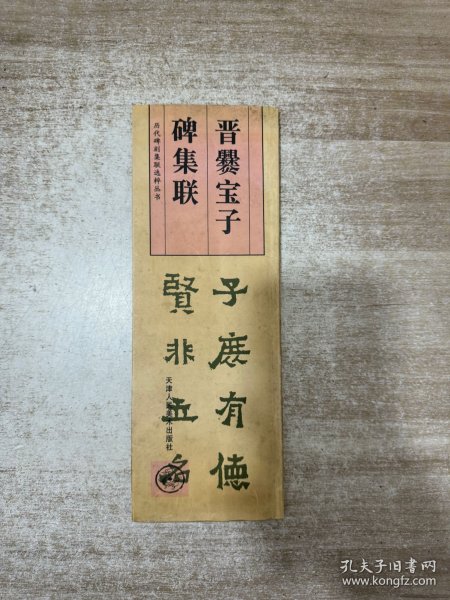 晋爨宝子
碑集联
历代碑刻集联选粹丛书
子庶有德
賢非立名
天津人民美术出版社
孔夫子旧书网
www.kongfz.com